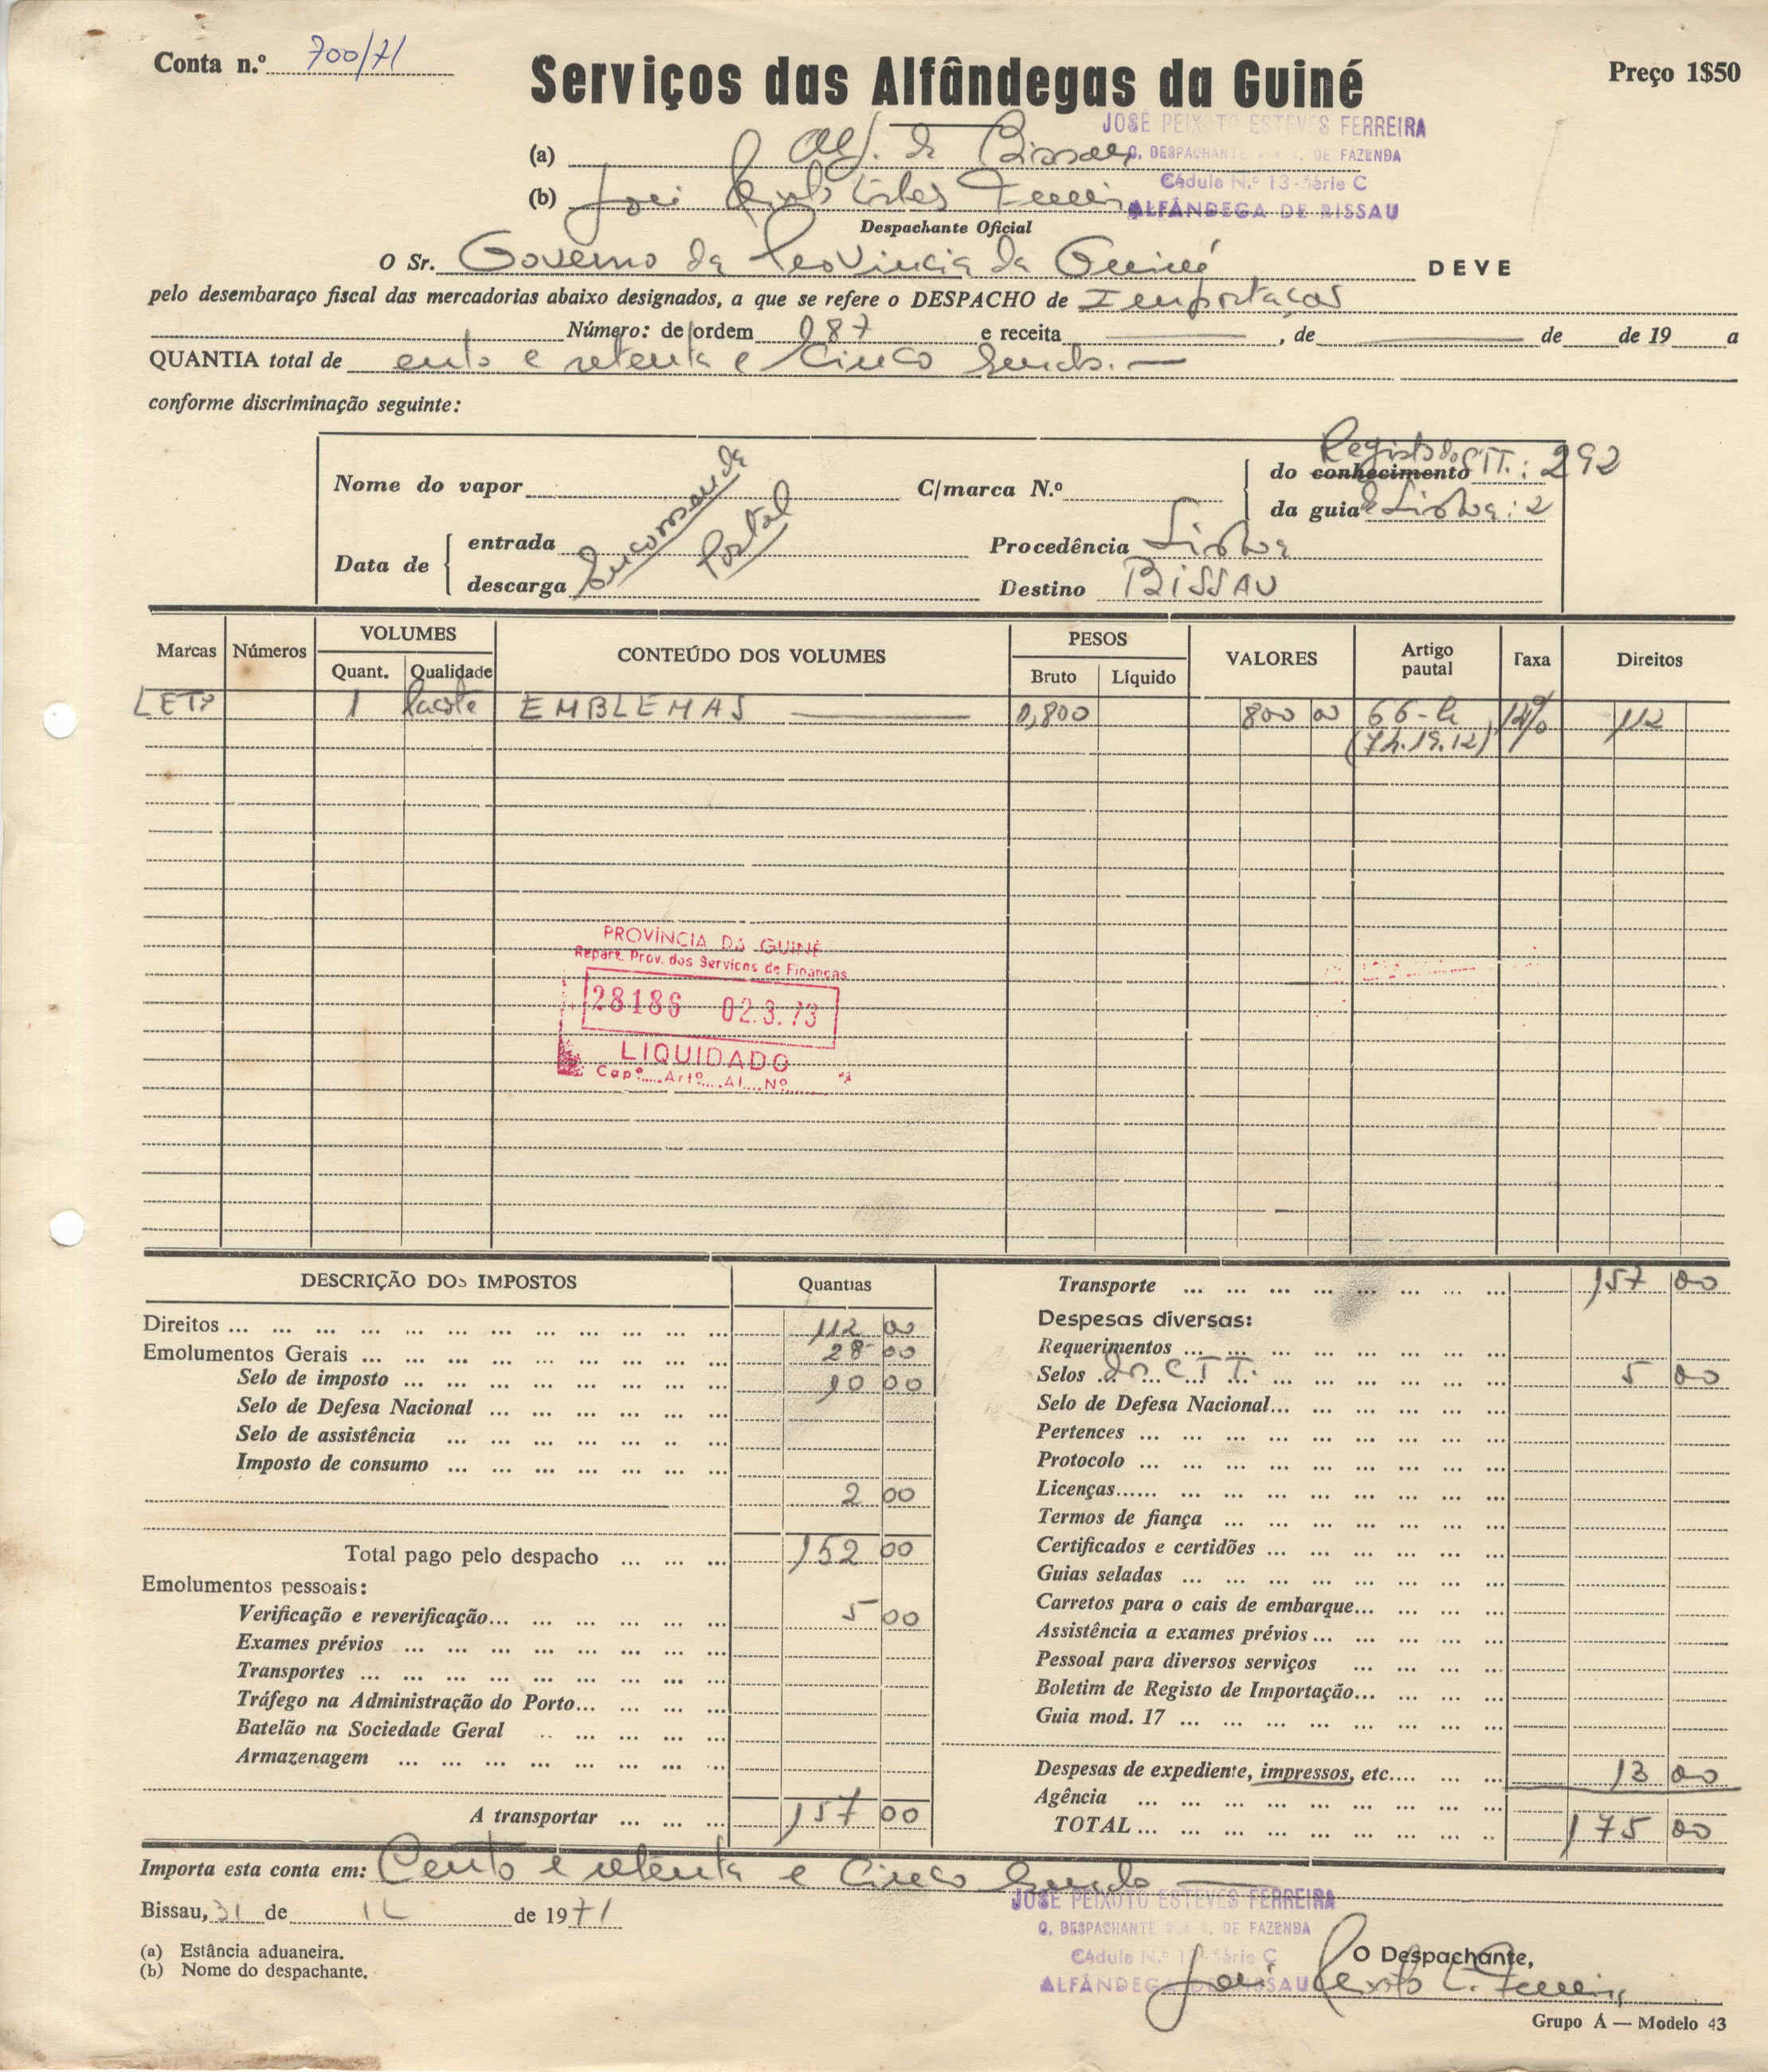 Conta n.º 700/71
Serviços das Alfândegas da Guiné
Preço 1$50
JOSÉ PEIXOTO ESTEVES FERREIRA
(a) Alf. de Bissau
O. DESPACHANTE DE FAZENDA
Cédula N.º 13-Série C
(b) José Peixoto Esteves Ferreira
ALFÂNDEGA DE BISSAU
Despachante Oficial
O Sr. Governo da Província da Guiné DEVE
pelo desembaraço fiscal das mercadorias abaixo designados, a que se refere o DESPACHO de Importação
Número: de ordem 987 e receita , de de de 19 a
QUANTIA total de ento e setenta e cinco escudos.—
conforme discriminação seguinte:
Nome do vapor C/marca N.º do conhecimento Registo do CTT.: 292
da guia de Lisboa: 2
Data de entrada Procedência Lisboa
descarga Destino BISSAU
Encomenda
Postal
Marcas Números VOLUMES CONTEÚDO DOS VOLUMES PESOS VALORES Artigo pautal Taxa Direitos
Quant. Qualidade Bruto Líquido
1 Pacote EMBLEMAS — 0,800 800 00 14% 112
PROVÍNCIA DA GUINÉ
Repart. Prov. dos Serviços de Finanças
28186 02.3.73
LIQUIDADO
Cap.º Art.º Al. N.º
DESCRIÇÃO DOS IMPOSTOS Quantias
Direitos ... 112 00
Emolumentos Gerais ... 28 00
Selo de imposto ... 10 00
Selo de Defesa Nacional ...
Selo de assistência ...
Imposto de consumo ...
2 00
Total pago pelo despacho ... 152 00
Emolumentos pessoais:
Verificação e reverificação... 5 00
Exames prévios ...
Transportes ...
Tráfego na Administração do Porto...
Batelão na Sociedade Geral ...
Armazenagem ...
A transportar ... 157 00
Transporte ... 157 00
Despesas diversas:
Requerimentos ...
Selos do CTT. 5 00
Selo de Defesa Nacional...
Pertences ...
Protocolo ...
Licenças......
Termos de fiança ...
Certificados e certidões ...
Guias seladas ...
Carretos para o cais de embarque...
Assistência a exames prévios...
Pessoal para diversos serviços ...
Boletim de Registo de Importação...
Guia mod. 17 ...
Despesas de expediente, impressos, etc.... 13 00
Agência ...
TOTAL... 175 00
Importa esta conta em: Cento e setenta e cinco escudos —
Bissau, 31 de 12 de 1971
JOSÉ PEIXOTO ESTEVES FERREIRA
O. DESPACHANTE DE FAZENDA
Cédula N.º 13-Série C
ALFÂNDEGA DE BISSAU
(a) Estância aduaneira.
(b) Nome do despachante.
O Despachante,
José Peixoto E. Ferreira
Grupo A — Modelo 43